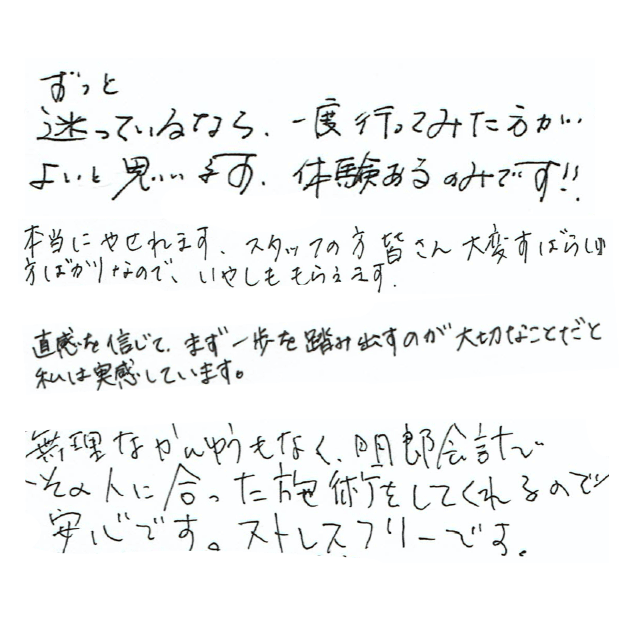 ずっと
迷っているなら、一度行ってみた方が…
よいと思います、体験あるのみです!!
本当にやせれます、スタッフの方皆さん大変すばらしい
方ばかりなので、いやしももらえます.
直感を信じて、まず一歩を踏み出すのが大切なことだと
私は実感しています。
無理なかんゆうもなく、明朗会計で
その人に合った施術をしてくれるので
安心です。ストレスフリーです。